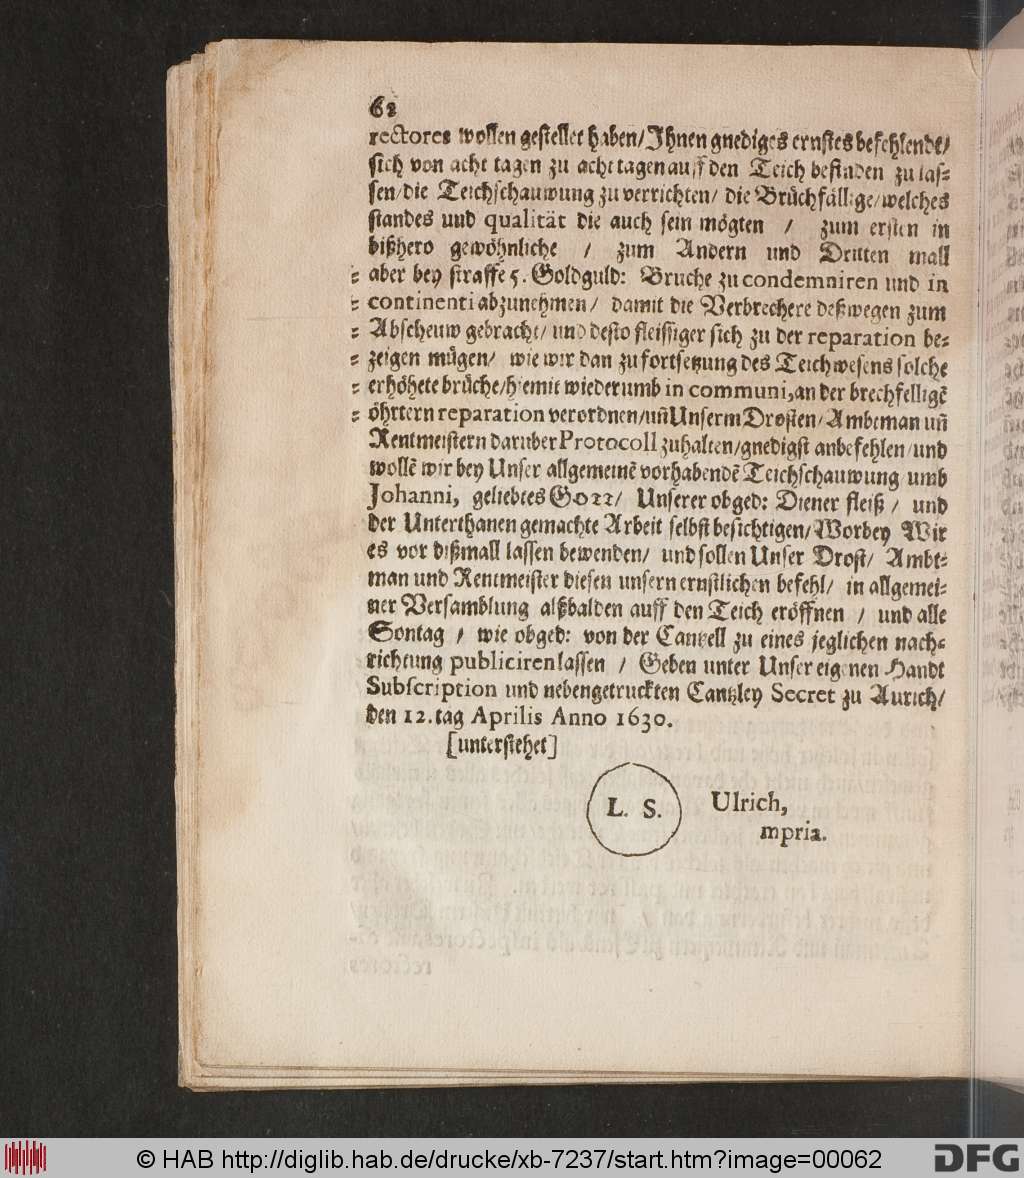 62
rectores wollen gestellet haben/ Ihnen gnediges ernstes befehlende/
sich von acht tagen zu acht tagen auff den Teich befinden zu las⸗
sen/ die Teichschauwung zu verrichten/ die Brüchfällige/ welches
standes und qualität die auch sein mögten / zum ersten in
bißhero gewöhnliche / zum Andern und Dritten mall
⸗ aber bey straffe 5. Goldguld: Bruche zu condemniren und in
⸗ continenti abzunehmen/ damit die Verbrechere deßwegen zum
⸗ Abscheuw gebracht/ und desto fleissiger sich zu der reparation be⸗
⸗ zeigen mügen/ wie wir dan zu fortsetzung des Teichwesens solche
⸗ erhöhete brüche/ hiemit wiederumb in communi, an der brechfelligē
⸗ öhrtern reparation verordnen/ uñ Unserm Drosten/ Ambtman uñ
Rentmeistern daruber Protocoll zuhalten/ gnedigst anbefehlen/ und
wollē wir bey Unser allgemeinē vorhabendē Teichschauwung umb
Johanni, geliebtes Gott/ Unserer obged: Diener fleiß / und
der Unterthanen gemachte Arbeit selbst besichtigen/ Worbey Wir
es vor dißmall lassen bewenden/ und sollen Unser Drost/ Ambt⸗
man und Rentmeister diesen unsern ernstlichen befehl/ in allgemei⸗
ner Versamblung alßbalden auff den Teich eröffnen / und alle
Sontag / wie obged: von der Cantzell zu eines jeglichen nach⸗
richtung publiciren lassen / Geben unter Unser eigenen Handt
Subscription und nebengetruckten Cantzley Secret zu Aurich/
den 12. tag Aprilis Anno 1630.
[unterstehet]
L. S.
Ulrich,
mpria.
© HAB http://diglib.hab.de/drucke/xb-7237/start.htm?image=00062
DFG